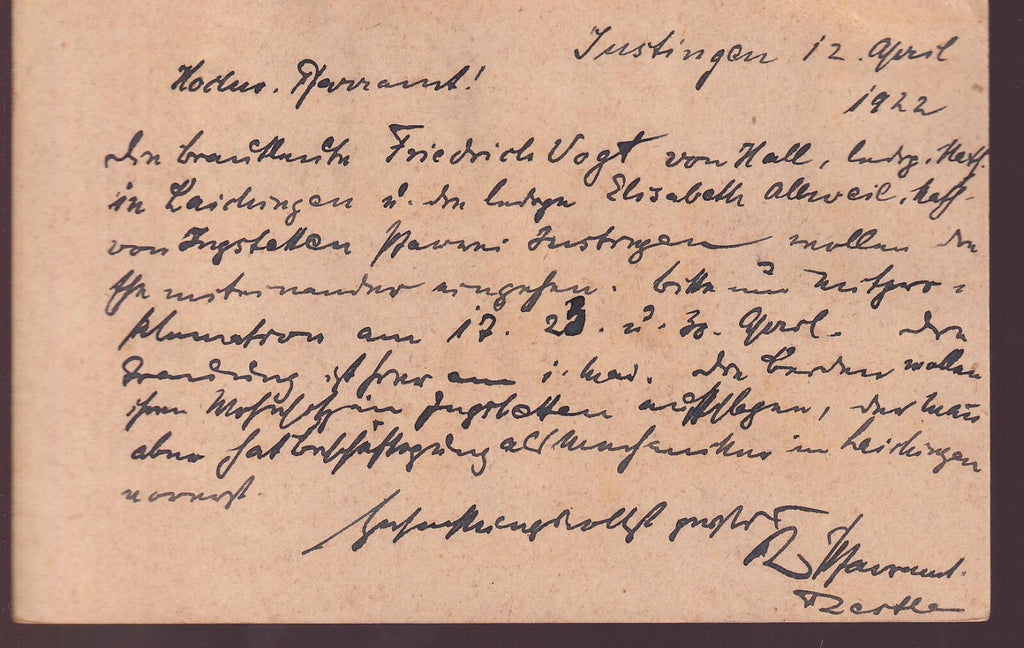 Justingen 12. April
1922
Hochw. Pfarramt!
Die Brautleute Friedrich Vogt von Hall, ledig, kath.
in Laichingen u. die ledige Elisabeth Allweil, kath.
von Ingstetten Pfarrei Justingen wollen die
Ehe miteinander eingehen. Bitte um Mitpro-
klamation am 17. 23. u. 30. April. Die
Trauung ist hier am 1. Mai. Die beiden wollen
ihren Wohnsitz in Ingstetten aufschlagen, der Mann
aber hat Beschäftigung als Mechaniker in Laichingen
vorerst.
Hochachtungsvollst grüßt
Pfarramt.